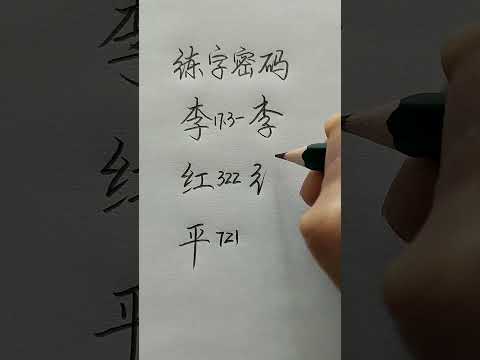 练字密码
李 173- 李
红 322
平 721